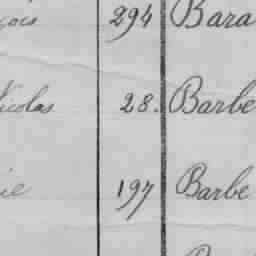 çois 294 Bara
Nicolas 28. Barbe
ie 197 Barbe